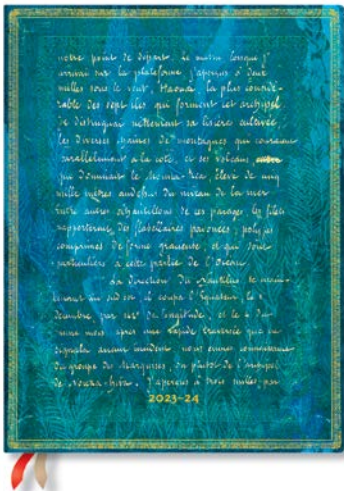 notre point de départ. Le matin lorsque j'
arrivai sur la plateforme j'aperçus à deux
milles sous le vent, Haouaï, la plus considé-
rable des sept îles qui forment cet archipel
Je distinguai nettement sa lisière cultivée
les diverses chaînes de montagnes qui couraient
parallèlement à la côte, et ses volcans
qui dominait le Mouna-Rea élevé de cinq
mille mètres audessus du niveau de la mer
Entre autres échantillons de ces parages, les filets
rapportèrent des flabellaires pavonées, polypes
comprimés de forme gracieuse, et qui sont
particuliers à cette partie de l'Océan
La direction du Nautilus se main-
au sud est. il coupa l'Équateur, le 1
décembre par de longitude, et le 4 du
même mois après une rapide traversée que ne
signala aucun incident, nous eûmes connaissance
du groupe des Marquises, de l'archipel
de Nouka-hiva. J'aperçus à trois milles, par
2023-24